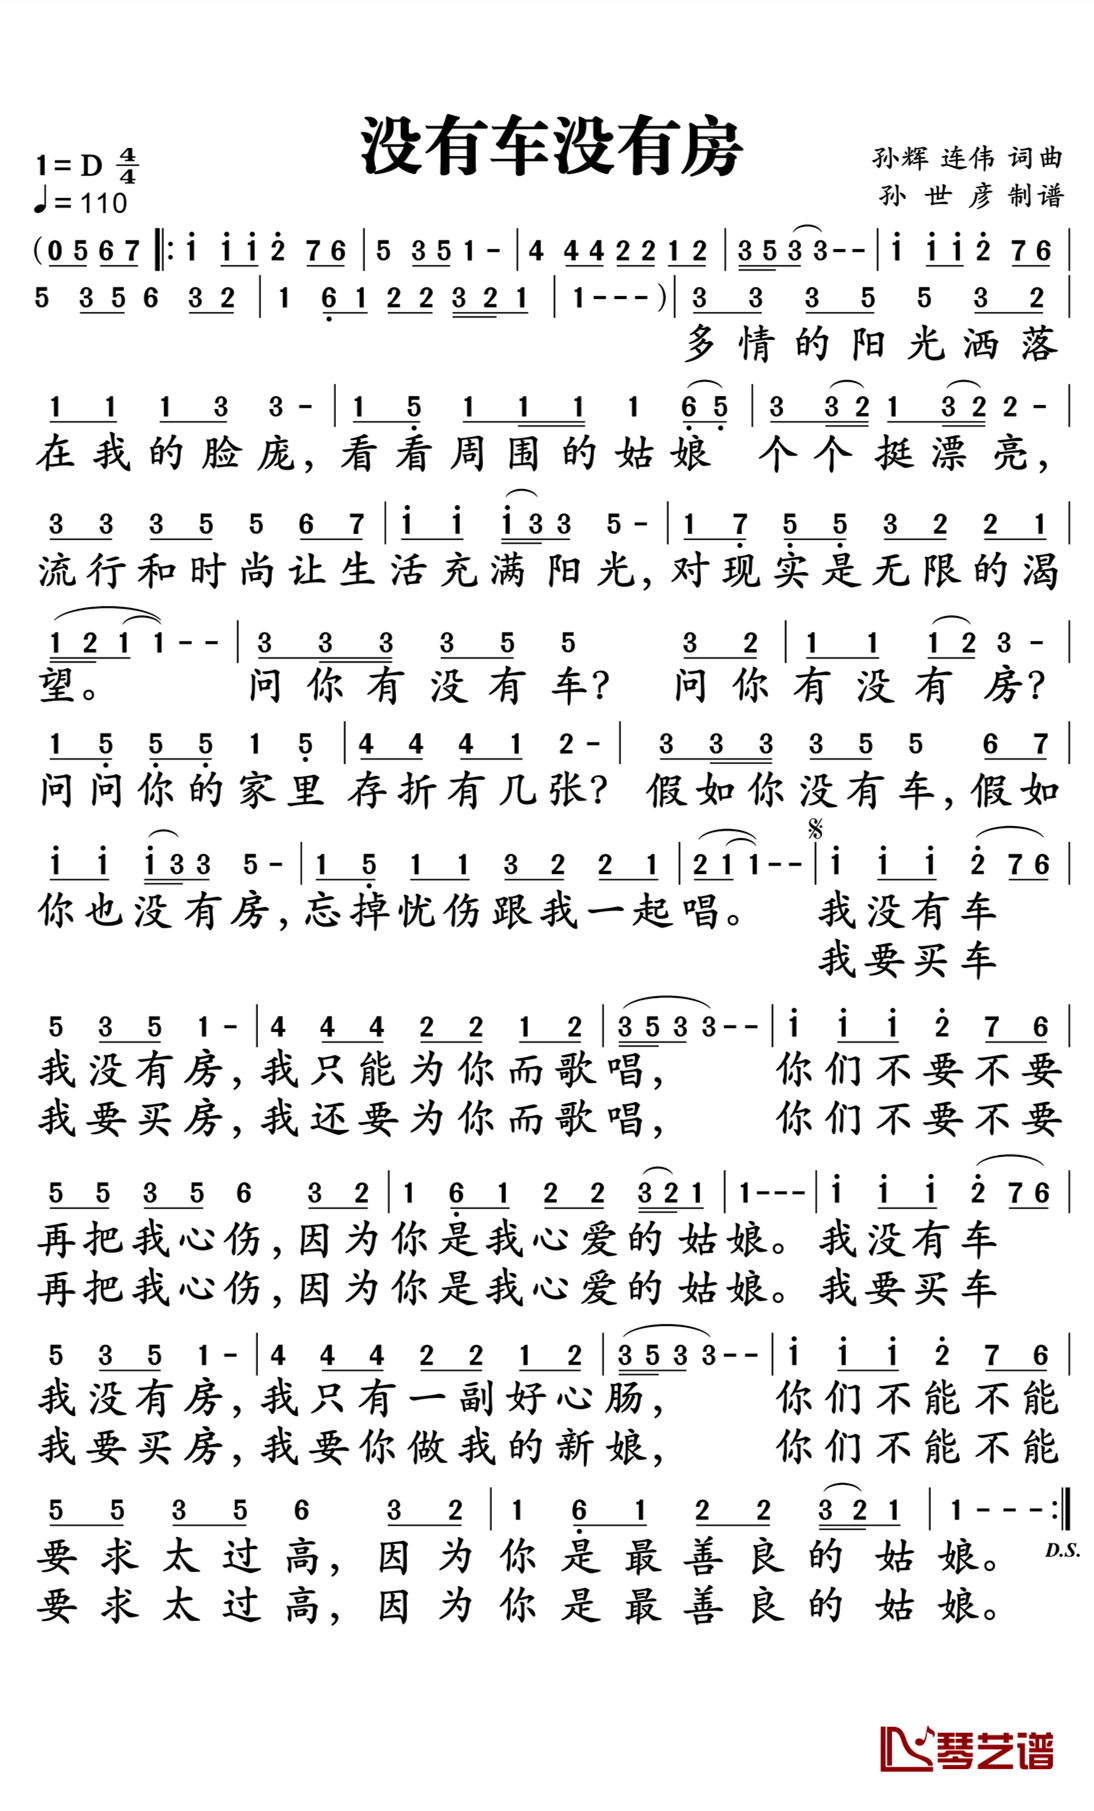 没有车没有房
1=D 4/4
孙辉 连伟 词曲
♩=110
孙 世 彦 制谱
(0 5 6 7 ‖: i i i 2 7 6 | 5 3 5 1 - | 4 4 4 2 2 1 2 | 3 5 3 3 - - | i i i 2 7 6 |
5 3 5 6 3 2 | 1 6 1 2 2 3 2 1 | 1 - - - ) | 3 3 3 5 5 3 2 |
多情的阳光洒落
1 1 1 3 3 - | 1 5 1 1 1 1 6 5 | 3 3 2 1 3 2 2 - |
在我的脸庞,看看周围的姑娘 个个挺漂亮,
3 3 3 5 5 6 7 | i i i 3 3 5 - | 1 7 5 5 3 2 2 1 |
流行和时尚让生活充满阳光,对现实是无限的渴
1 2 1 1 - - | 3 3 3 3 5 5 3 2 | 1 1 1 2 3 - |
望。 问你有没有车? 问你有没有房?
1 5 5 5 1 5 | 4 4 4 1 2 - | 3 3 3 3 5 5 6 7 |
问问你的家里存折有几张? 假如你没有车,假如
i i i 3 3 5 - | 1 5 1 1 3 2 2 1 | 2 1 1 - - | 𝄋 i i i 2 7 6 |
你也没有房,忘掉忧伤跟我一起唱。 我没有车
我要买车
5 3 5 1 - | 4 4 4 2 2 1 2 | 3 5 3 3 - - | i i i 2 7 6 |
我没有房,我只能为你而歌唱, 你们不要不要
我要买房,我还要为你而歌唱, 你们不要不要
5 5 3 5 6 3 2 | 1 6 1 2 2 3 2 1 | 1 - - - | i i i 2 7 6 |
再把我心伤,因为你是我心爱的姑娘。我没有车
再把我心伤,因为你是我心爱的姑娘。我要买车
5 3 5 1 - | 4 4 4 2 2 1 2 | 3 5 3 3 - - | i i i 2 7 6 |
我没有房,我只有一副好心肠, 你们不能不能
我要买房,我要你做我的新娘, 你们不能不能
5 5 3 5 6 3 2 | 1 6 1 2 2 3 2 1 | 1 - - - :‖
要求太过高,因为你是最善良的姑娘。 D.S.
要求太过高,因为你是最善良的姑娘。
琴艺谱